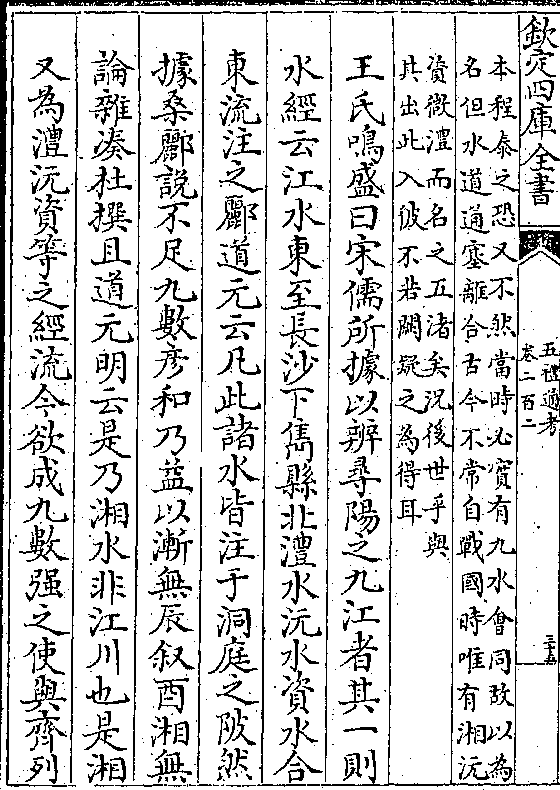 欽定四庫全書
五禮通考
卷二百二
三五
本程泰之恐又不然當時必實有九水會同故以為
名但水道通塞離合古今不常自戰國時唯有湘沅
資微澧而名之五渚矣況後世乎與
其出此入彼不若闕疑之為得耳
王氏鳴盛曰宋儒所據以辨尋陽之九江者其一則
水經云江水東至長沙下雋縣北澧水沅水資水合
東流注之酈道元云凡此諸水皆注于洞庭之陂然
據桑酈說不足九數彦和乃益以漸無辰叙酉湘無
論雜湊杜撰且道元明云是乃湘水非江川也是湘
又為澧沅資等之經流今欲成九數强之使與齊列